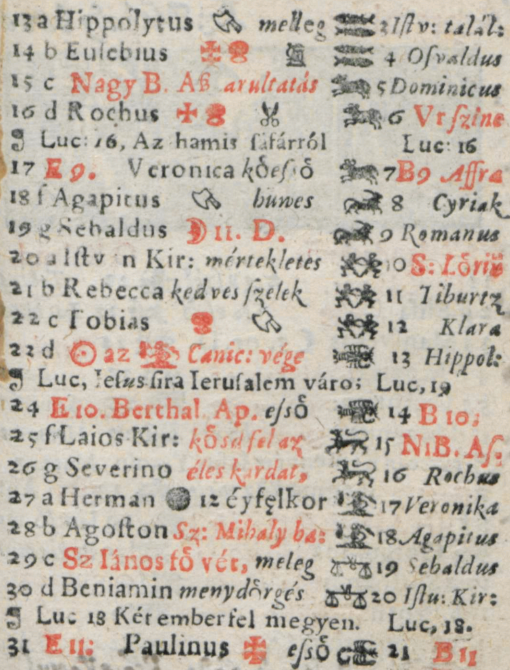 13 a Hippolytus melleg 3 Iſtv: talál:
14 b Euſebius 4 Oſvaldus
15 c Nagy B. Aß arultatás 5 Dominicus
16 d Rochus 6 Vr ſzine
¶ Luc: 16, Az hamis ſáfárról Luc: 16
17 E 9. Veronica kőeſső 7 B9 Affra
18 f Agapitus huwes 8 Cyriak
19 g Sebaldus II. D. 9 Romanus
20 a Iſtv n Kir: mértekletes 10 S: Lőri
21 b Rebecca kedves ſzelek 11 Tiburtz
22 c Tobias 12 Klara
22 d az Canic: vége 13 Hippol:
¶ Luc, Jeſus ſira Ieruſalem váro: Luc, 19
24 E 10. Berthal. Ap. eſső 14 B 10:
25 f Laios Kir: kősd fel az 15 N.B. Aſ.
26 g Severino éles kardat, 16 Rochus
27 a Herman 12 éyfęlkor 17 Veronika
28 b Agoſton Sz: Mihaly ba: 18 Agapitus
29 c Sz Iános fő vét, meleg 19 Sebaldus
30 d Beniamin menydőrgés 20 Iſtu: Kir:
¶ Luc 18 Két ember fel megyen. Luc, 18.
31 E 11: Paulinus eſső 21 B 11